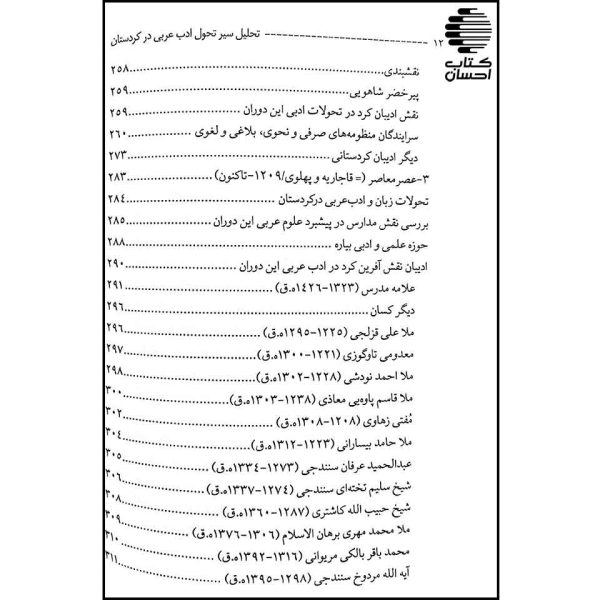 ۱۲ ------------------------------ تحلیل سیر تحول ادب عربی در کردستان
کتاب
احسان
نقشبندی..........۲۵۸
پیرخضر شاهویی..........۲۵۹
نقش ادیبان کرد در تحولات ادبی این دوران ..........۲۵۹
سرایندگان منظومه‌های صرفی و نحوی، بلاغی و لغوی ..........۲۶۰
دیگر ادیبان کردستانی ..........۲۷۳
۳-عصر معاصر (= قاجاریه و پهلوی/۱۲۰۹-تاکنون) ..........۲۸۳
تحولات زبان و ادب عربی درکردستان ..........۲۸۴
بررسی نقش مدارس در پیشبرد علوم عربی این دوران ..........۲۸۵
حوزه علمی و ادبی بیاره ..........۲۸۸
ادیبان نقش آفرین کرد در ادب عربی این دوران ..........۲۹۰
علامه مدرس (۱۳۲۳-۱۴۲۶ه.ق) ..........۲۹۱
دیگر کسان ..........۲۹۶
ملا علی قزلجی (۱۲۲۵-۱۲۹۵ه.ق) ..........۲۹۶
معدومی تاوگوزی (۱۲۲۱-۱۳۰۰ه.ق) ..........۲۹۷
ملا احمد نودشی (۱۲۲۸-۱۳۰۲ه.ق) ..........۲۹۸
ملا قاسم پاوه‌یی معاذی (۱۲۳۸-۱۳۰۳ه.ق) ..........۳۰۰
مُفتی زهاوی (۱۲۰۸-۱۳۰۸ه.ق) ..........۳۰۲
ملا حامد بیسارانی (۱۲۲۳-۱۳۱۲ه.ق) ..........۳۰۴
عبدالحمید عرفان سنندجی (۱۲۷۳-۱۳۳۴ه.ق) ..........۳۰۵
شیخ سلیم تخته‌ای سنندجی (۱۲۷۴-۱۳۳۷ه.ق) ..........۳۰۶
شیخ حبیب الله کاشتری (۱۲۸۷-۱۳۶۰ه.ق) ..........۳۰۸
ملا محمد مهری برهان الاسلام (۱۳۰۶-۱۳۷۶ه.ق) ..........۳۰۹
محمد باقر بالکی مریوانی (۱۳۱۶-۱۳۹۲ه.ق) ..........۳۱۰
آیه الله مردوخ سنندجی (۱۲۹۸-۱۳۹۵ه.ق) ..........۳۱۱